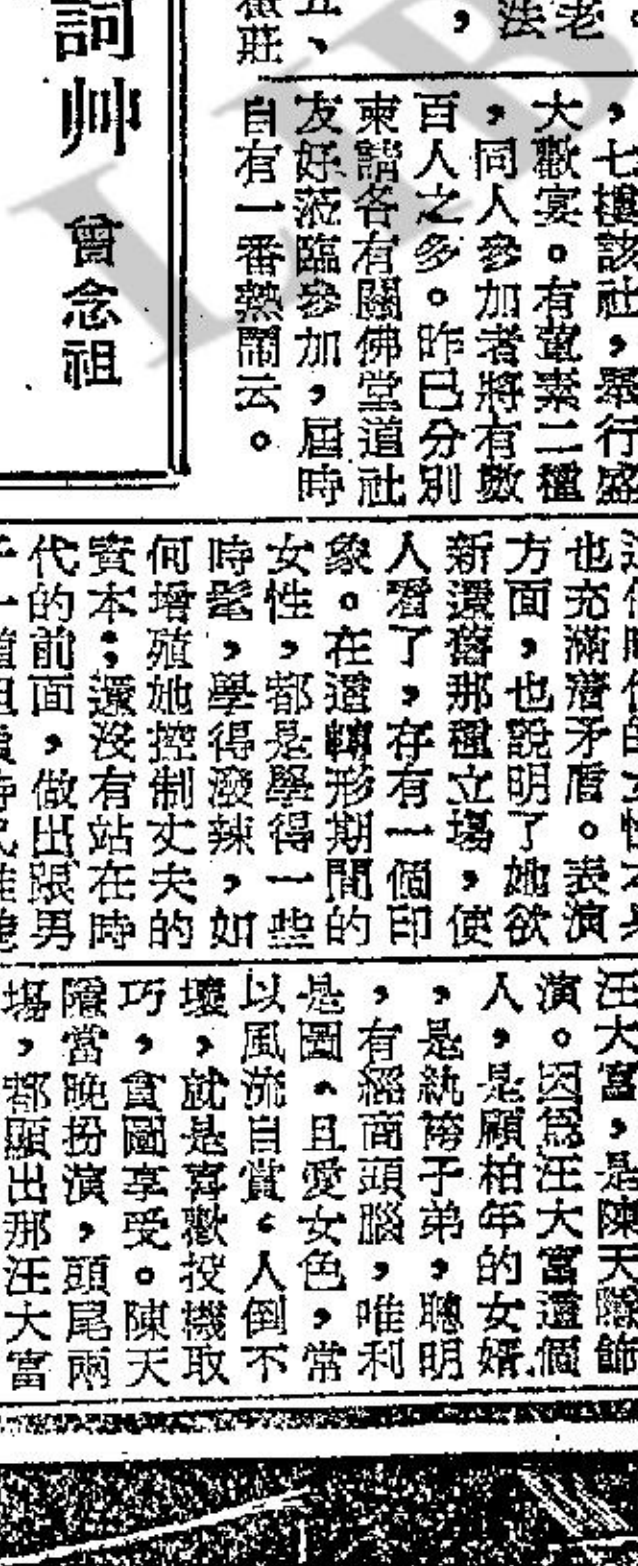 ，法老。
五、
莊、
，七樓該社，舉行盛
大歡宴。有葷素二種
，同人參加者將有數
百人之多。昨已分別
柬請各有關佛堂道社
友好蒞臨參加，屆時
自有一番熱鬧云。
詞艸
曾念祖
也充滿著矛盾。表演
方面，也說明了她欲
新還舊那種立場，使
人看了，存有一個印
象。在這轉形期間的
女性，都是學得一些
時髦，學得潑辣，如
何增殖她控制丈夫的
資本；還沒有站在時
代的前面，做出跟男
汪大富，是陳天隲飾
演。因為汪大富這個
人，是顧柏年的女婿
，是紈袴子弟，聰明
，有經商頭腦，唯利
是圖。且愛女色，常
以風流自賞。人倒不
壞，就是喜歡投機取
巧，貪圖享受。陳天
隲當晚扮演，頭尾兩
場，都顯出那汪大富
LIB